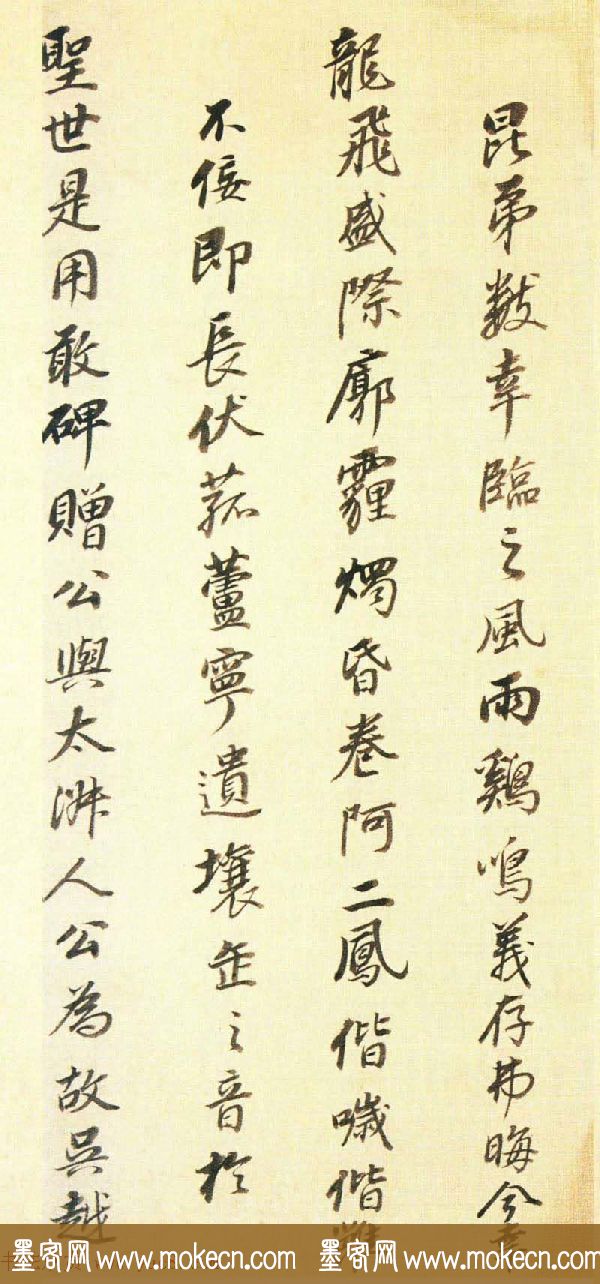 昆弟數幸臨之風雨鷄鳴義存弗晦今幸
龍飛盛際廓霾燭昏卷阿二鳳偕噦偕雝
不佞即長伏菰蘆寧遺壤缶之音於
聖世是用敢碑贈公與太淋人公為故吳越
墨客网 www.mokecn.com 墨客网 www.mokecn.com